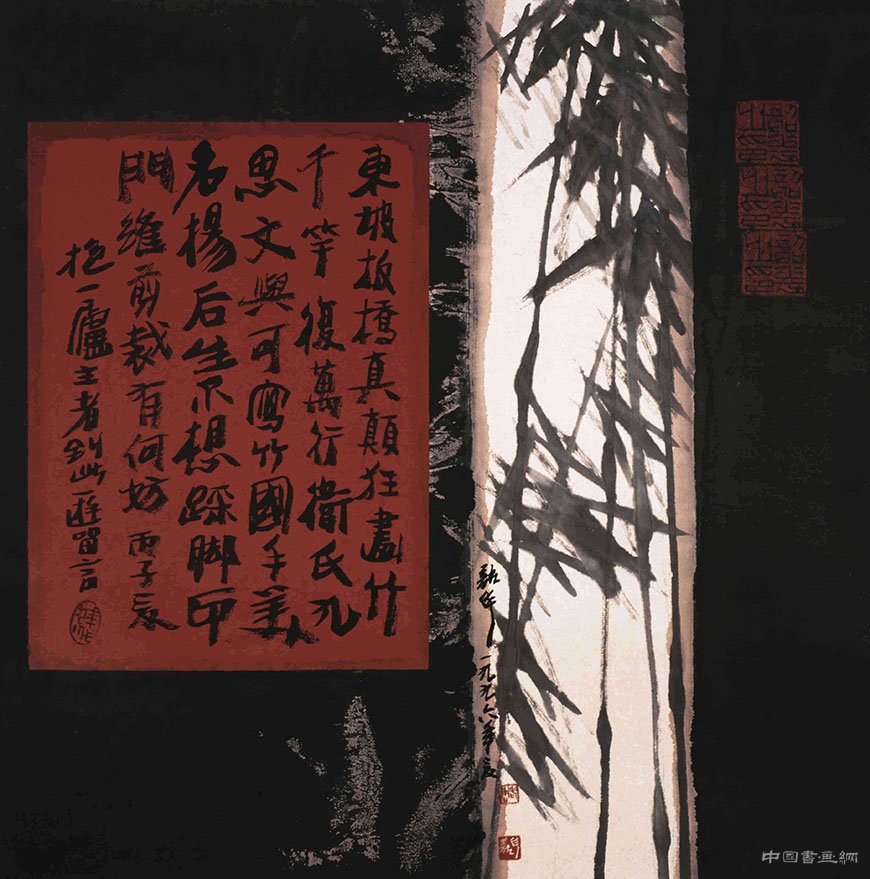 東坡板橋真顛狂畫竹
千竿復萬行衛氏九
思文與可寫竹國手美
名揚后生不想踩脚印
門維剪裁有何妨 丙子夏
抱一廬主者到此一遊留言
一九九六年夏
中国書画網